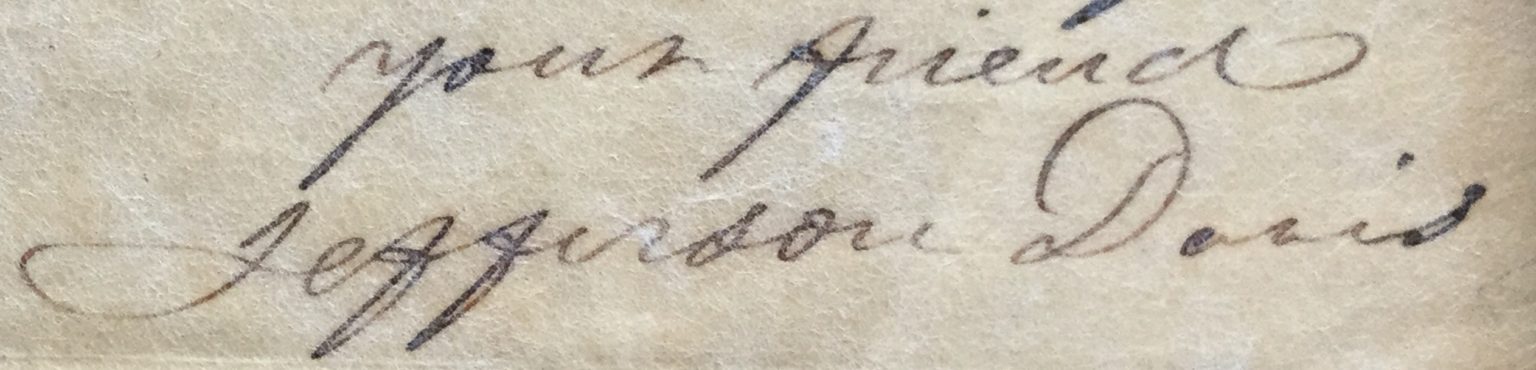 your friend
Jefferson Davis